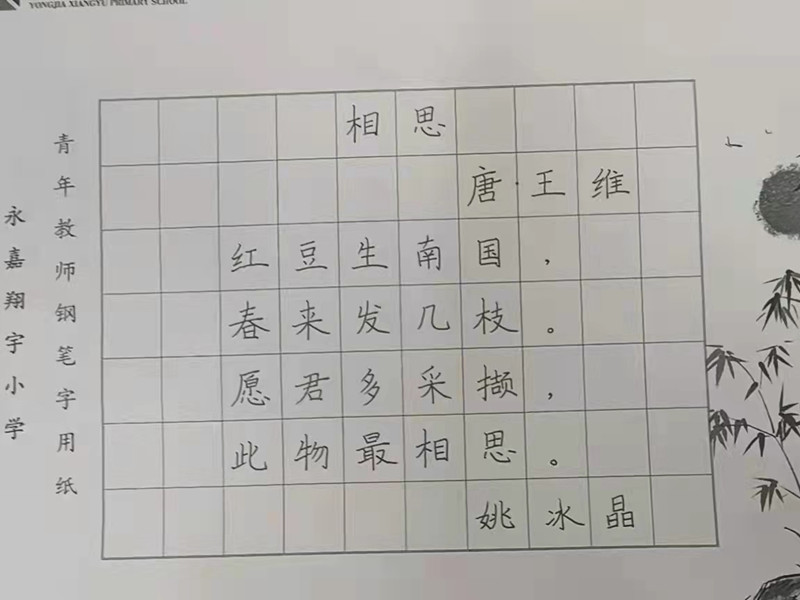 YONGJIA XIANGYU PRIMARY SCHOOL
永嘉翔宇小学
青年教师钢笔字用纸
相思
唐·王维
红豆生南国，
春来发几枝。
愿君多采撷，
此物最相思。
姚冰晶